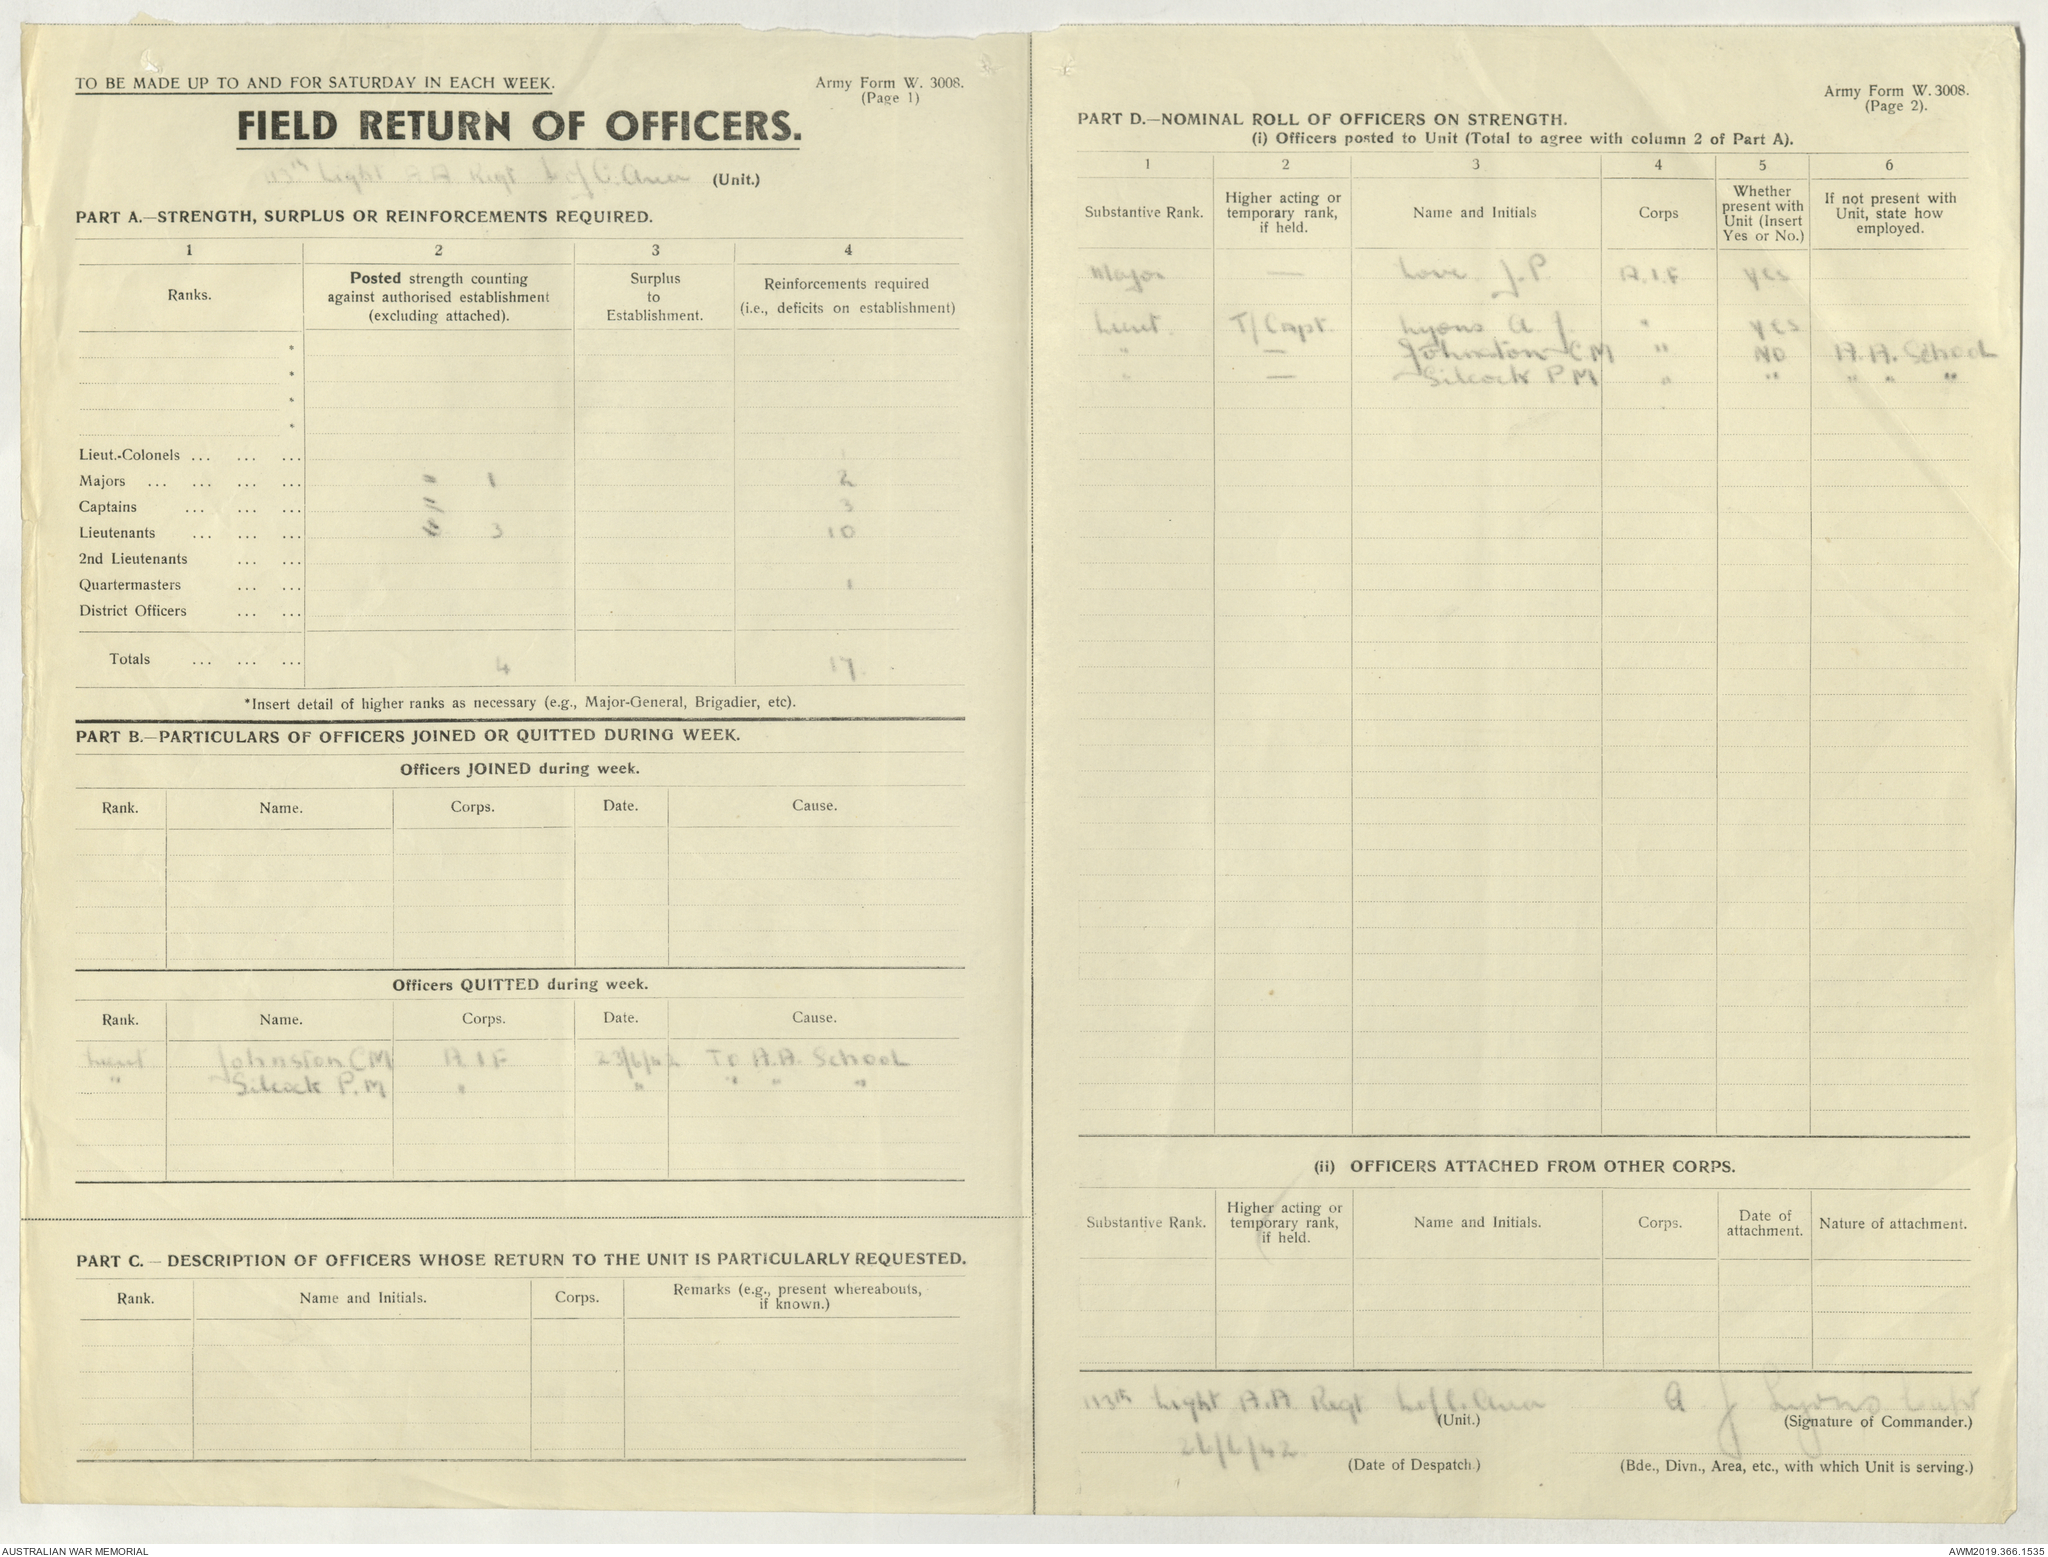 TO BE MADE UP TO AND FOR SATURDAY IN EACH WEEK.
Army Form W. 3008.
(Page 1)
FIELD RETURN OF OFFICERS.
113th Light A A Regt L of C. Area (Unit.)
PART A.—STRENGTH, SURPLUS OR REINFORCEMENTS REQUIRED.
1 2 3 4
Ranks. Posted strength counting against authorised establishment (excluding attached). Surplus to Establishment. Reinforcements required (i.e., deficits on establishment)
*
*
*
*
Lieut.-Colonels ... ... ... 1
Majors ... ... ... ... 1 2
Captains ... ... ... 3
Lieutenants ... ... ... 3 10
2nd Lieutenants ... ...
Quartermasters ... ... 1
District Officers ... ...
Totals ... ... ... 4 17.
*Insert detail of higher ranks as necessary (e.g., Major-General, Brigadier, etc).
PART B.—PARTICULARS OF OFFICERS JOINED OR QUITTED DURING WEEK.
Officers JOINED during week.
Rank. Name. Corps. Date. Cause.
Officers QUITTED during week.
Rank. Name. Corps. Date. Cause.
Lieut Johnston C M A I F 23/6/42 To A.A. School
" Silcock P. M " " " " "
PART C. — DESCRIPTION OF OFFICERS WHOSE RETURN TO THE UNIT IS PARTICULARLY REQUESTED.
Rank. Name and Initials. Corps. Remarks (e.g., present whereabouts, if known.)
Army Form W. 3008.
(Page 2).
PART D.—NOMINAL ROLL OF OFFICERS ON STRENGTH.
(i) Officers posted to Unit (Total to agree with column 2 of Part A).
1 2 3 4 5 6
Substantive Rank. Higher acting or temporary rank, if held. Name and Initials Corps Whether present with Unit (Insert Yes or No.) If not present with Unit, state how employed.
Major — Love J. P. A.I.F yes
Lieut. T/Capt. Lyons A. J. " yes
" — Johnston C M " NO A.A. School
" — Silcock P M " " " " "
(ii) OFFICERS ATTACHED FROM OTHER CORPS.
Substantive Rank. Higher acting or temporary rank, if held. Name and Initials. Corps. Date of attachment. Nature of attachment.
113th Light A.A Regt L of C. Area A J Lyons Capt
(Unit.) (Signature of Commander.)
26/6/42
(Date of Despatch.) (Bde., Divn., Area, etc., with which Unit is serving.)
AUSTRALIAN WAR MEMORIAL AWM2019.366.1535